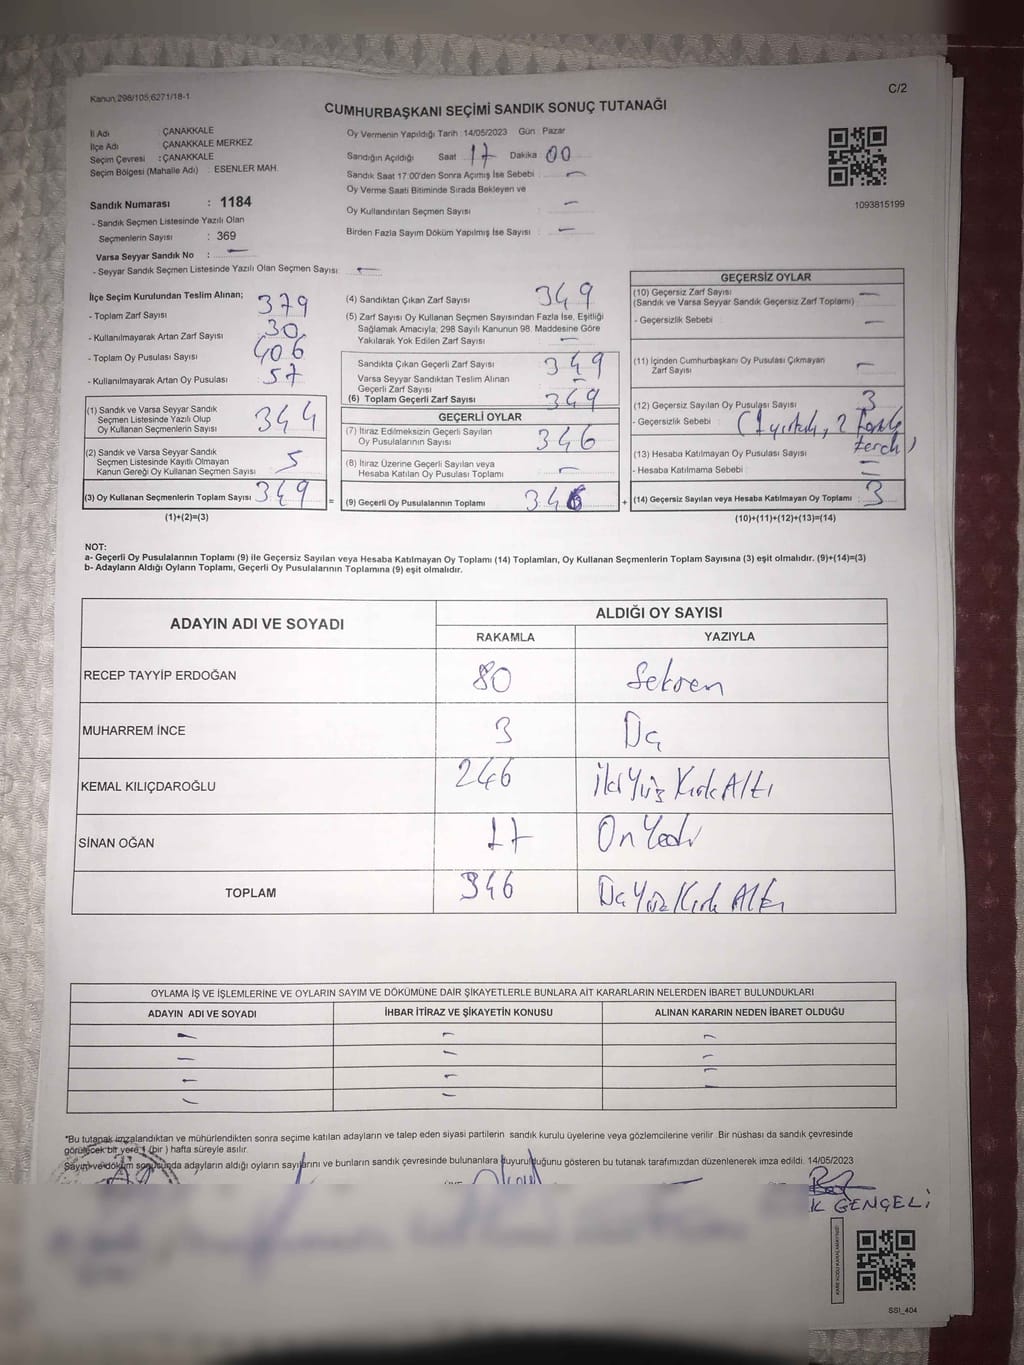 Kanun;298/105;6271/18-1
C/2
CUMHURBAŞKANI SEÇİMİ SANDIK SONUÇ TUTANAĞI
İl Adı : ÇANAKKALE
İlçe Adı : ÇANAKKALE MERKEZ
Seçim Çevresi : ÇANAKKALE
Seçim Bölgesi (Mahalle Adı) : ESENLER MAH.
Sandık Numarası : 1184
- Sandık Seçmen Listesinde Yazılı Olan
Seçmenlerin Sayısı : 369
Varsa Seyyar Sandık No : —
- Seyyar Sandık Seçmen Listesinde Yazılı Olan Seçmen Sayısı: —
Oy Vermenin Yapıldığı Tarih : 14/05/2023 Gün : Pazar
Sandığın Açıldığı Saat 17 Dakika 00
Sandık Saat 17:00'den Sonra Açılmış İse Sebebi : —
Oy Verme Saati Bitiminde Sırada Bekleyen ve
Oy Kullandırılan Seçmen Sayısı : —
Birden Fazla Sayım Döküm Yapılmış İse Sayısı : —
1093815199
İlçe Seçim Kurulundan Teslim Alınan;
- Toplam Zarf Sayısı 379
- Kullanılmayarak Artan Zarf Sayısı 30
- Toplam Oy Pusulası Sayısı 406
- Kullanılmayarak Artan Oy Pusulası 57
(1) Sandık ve Varsa Seyyar Sandık
Seçmen Listesinde Yazılı Olup
Oy Kullanan Seçmenlerin Sayısı 344
(2) Sandık ve Varsa Seyyar Sandık
Seçmen Listesinde Kayıtlı Olmayan
Kanun Gereği Oy Kullanan Seçmen Sayısı 5
(3) Oy Kullanan Seçmenlerin Toplam Sayısı 349 =
(1)+(2)=(3)
(4) Sandıktan Çıkan Zarf Sayısı 349
(5) Zarf Sayısı Oy Kullanan Seçmen Sayısından Fazla İse, Eşitliği
Sağlamak Amacıyla, 298 Sayılı Kanunun 98. Maddesine Göre
Yakılarak Yok Edilen Zarf Sayısı —
Sandıkta Çıkan Geçerli Zarf Sayısı 349
Varsa Seyyar Sandıktan Teslim Alınan
Geçerli Zarf Sayısı —
(6) Toplam Geçerli Zarf Sayısı 349
GEÇERLİ OYLAR
(7) İtiraz Edilmeksizin Geçerli Sayılan
Oy Pusulalarının Sayısı 346
(8) İtiraz Üzerine Geçerli Sayılan veya
Hesaba Katılan Oy Pusulası Toplamı —
(9) Geçerli Oy Pusulalarının Toplamı 346 +
GEÇERSİZ OYLAR
(10) Geçersiz Zarf Sayısı —
(Sandık ve Varsa Seyyar Sandık Geçersiz Zarf Toplamı)
- Geçersizlik Sebebi : —
(11) İçinden Cumhurbaşkanı Oy Pusulası Çıkmayan
Zarf Sayısı —
(12) Geçersiz Sayılan Oy Pusulası Sayısı 3
- Geçersizlik Sebebi : (1 yırtık, 2 fazla
(13) Hesaba Katılmayan Oy Pusulası Sayısı —
- Hesaba Katılmama Sebebi : —
(14) Geçersiz Sayılan veya Hesaba Katılmayan Oy Toplamı : 3
(10)+(11)+(12)+(13)=(14)
NOT:
a- Geçerli Oy Pusulalarının Toplamı (9) ile Geçersiz Sayılan veya Hesaba Katılmayan Oy Toplamı (14) Toplamları, Oy Kullanan Seçmenlerin Toplam Sayısına (3) eşit olmalıdır. (9)+(14)=(3)
b- Adayların Aldığı Oyların Toplamı, Geçerli Oy Pusulalarının Toplamına (9) eşit olmalıdır.
ADAYIN ADI VE SOYADI
ALDIĞI OY SAYISI
RAKAMLA YAZIYLA
RECEP TAYYİP ERDOĞAN 80 Seksen
MUHARREM İNCE 3 Üç
KEMAL KILIÇDAROĞLU 246 İki Yüz Kırk Altı
SİNAN OĞAN 17 On Yedi
TOPLAM 346 Üç Yüz Kırk Altı
OYLAMA İŞ VE İŞLEMLERİNE VE OYLARIN SAYIM VE DÖKÜMÜNE DAİR ŞİKAYETLERLE BUNLARA AİT KARARLARIN NELERDEN İBARET BULUNDUKLARI
ADAYIN ADI VE SOYADI İHBAR İTİRAZ VE ŞİKAYETİN KONUSU ALINAN KARARIN NEDEN İBARET OLDUĞU
— — —
— — —
— — —
— — —
*Bu tutanak imzalandıktan ve mühürlendikten sonra seçime katılan adayların ve talep eden siyasi partilerin sandık kurulu üyelerine veya gözlemcilerine verilir. Bir nüshası da sandık çevresinde
görülecek bir yere 1 (bir) hafta süreyle asılır.
Sayım ve döküm sonucunda adayların aldığı oyların sayılarını ve bunların sandık çevresinde bulunanlara duyurulduğunu gösteren bu tutanak tarafımızdan düzenlenerek imza edildi. 14/05/2023
GENÇELİ
SSI_404